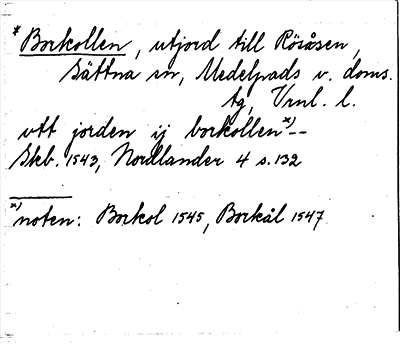 * Borkollen, utjord till Rösåsen,
Sättna sn, Medelpads v. doms.
tg, Vrnl. l.
utt jorden ij borkollen x) --
Skb. 1543, Nordlander 4 s. 132
x) noten: Borkol 1545, Borkål 1547